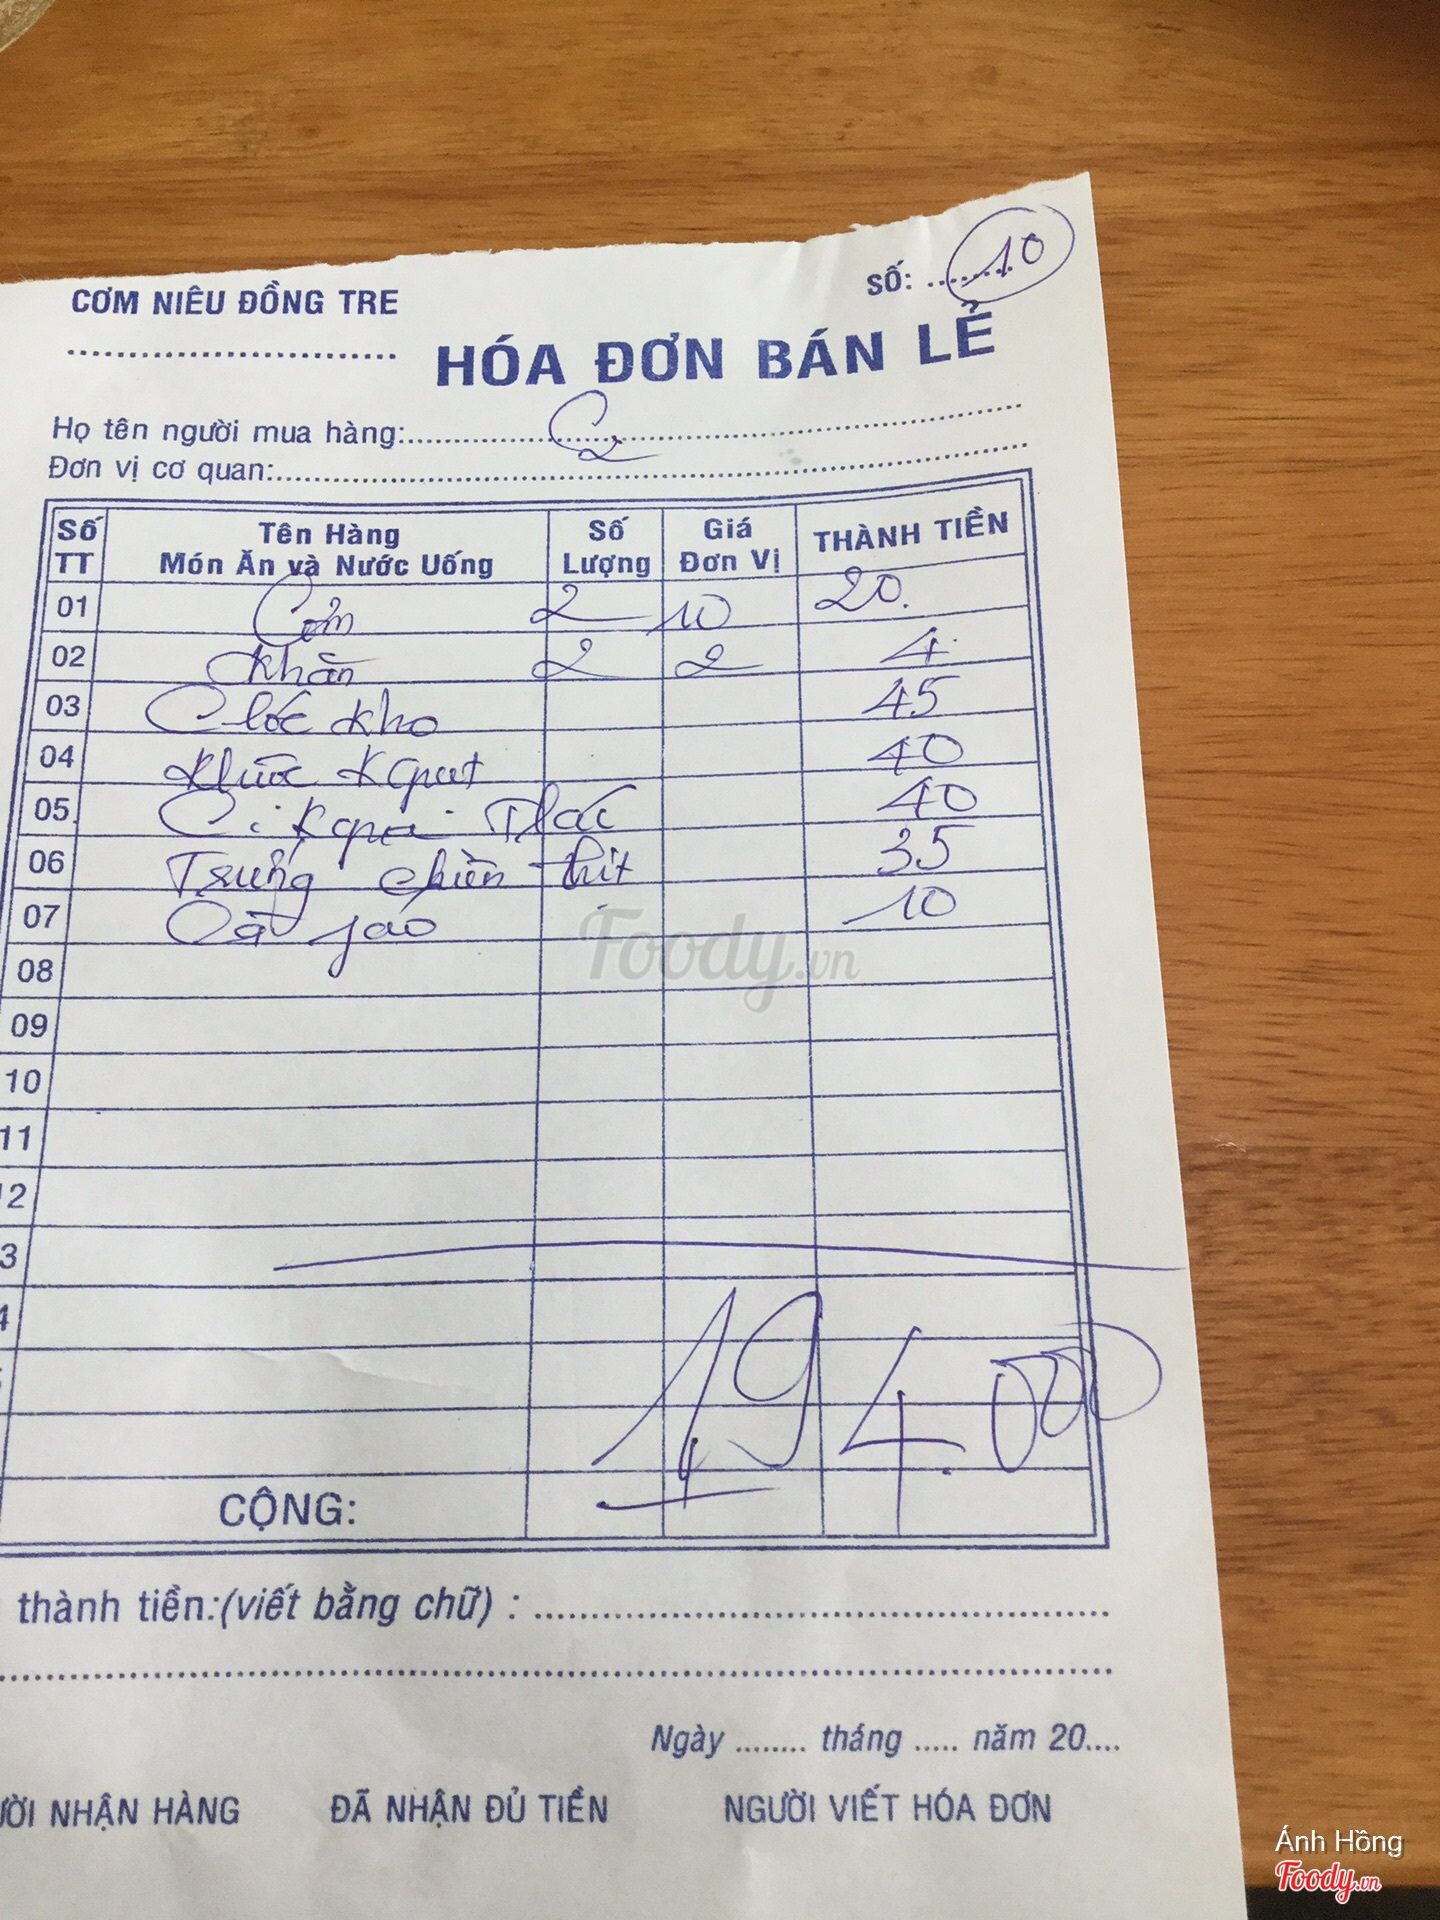 SỐ: ........ 10
CƠM NIÊU ĐỒNG TRE
HÓA ĐƠN BÁN LẺ
Họ tên người mua hàng: C2
Đơn vị cơ quan:
Số TT Tên Hàng Món Ăn và Nước Uống Số Lượng Giá Đơn Vị THÀNH TIỀN
01 Cơm 2 10 20.
02 Khăn 2 2 4
03 C lóc kho 45
04 K quẹt 40
05. C. Thác 40
06 Trứng chiên thịt 35
07 Cà 10
08
09
10
11
12
3
4
194.000
CỘNG:
thành tiền:(viết bằng chữ) :
Ngày ........ tháng ..... năm 20....
ƯỜI NHẬN HÀNG ĐÃ NHẬN ĐỦ TIỀN NGƯỜI VIẾT HÓA ĐƠN
Foody.vn
Ánh Hồng
Foody.vn